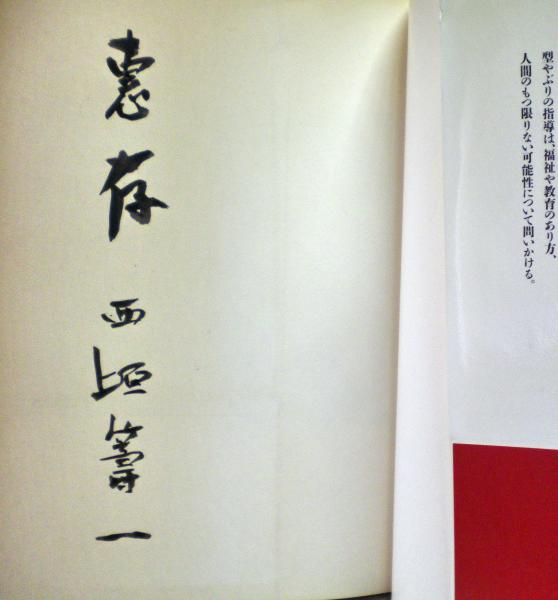 型やぶりの指導は、福祉や教育のあり方、
人間のもつ限りない可能性について問いかける。
恵存
西垣籌一